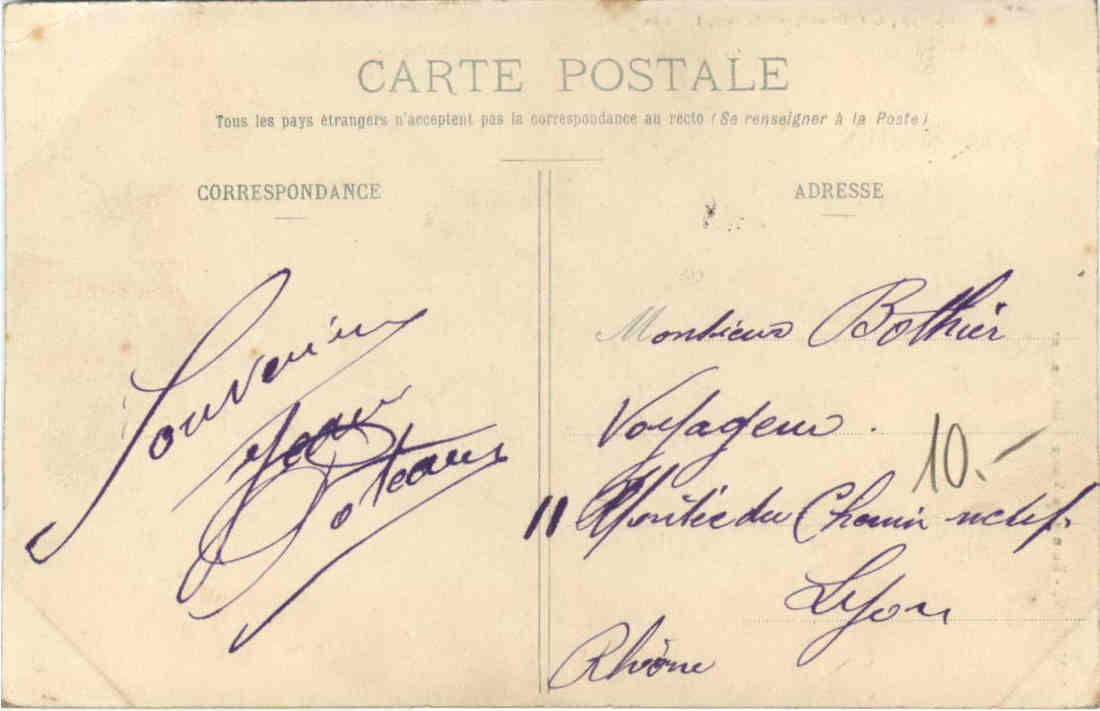 CARTE POSTALE
Tous les pays étrangers n'acceptent pas la correspondance au recto (Se renseigner à la Poste)
CORRESPONDANCE
Souvenir
Jean
ADRESSE
Monsieur Bothier
Voyageur.
10.-
11 Montée du Chemin neuf.
Lyon
Rhône